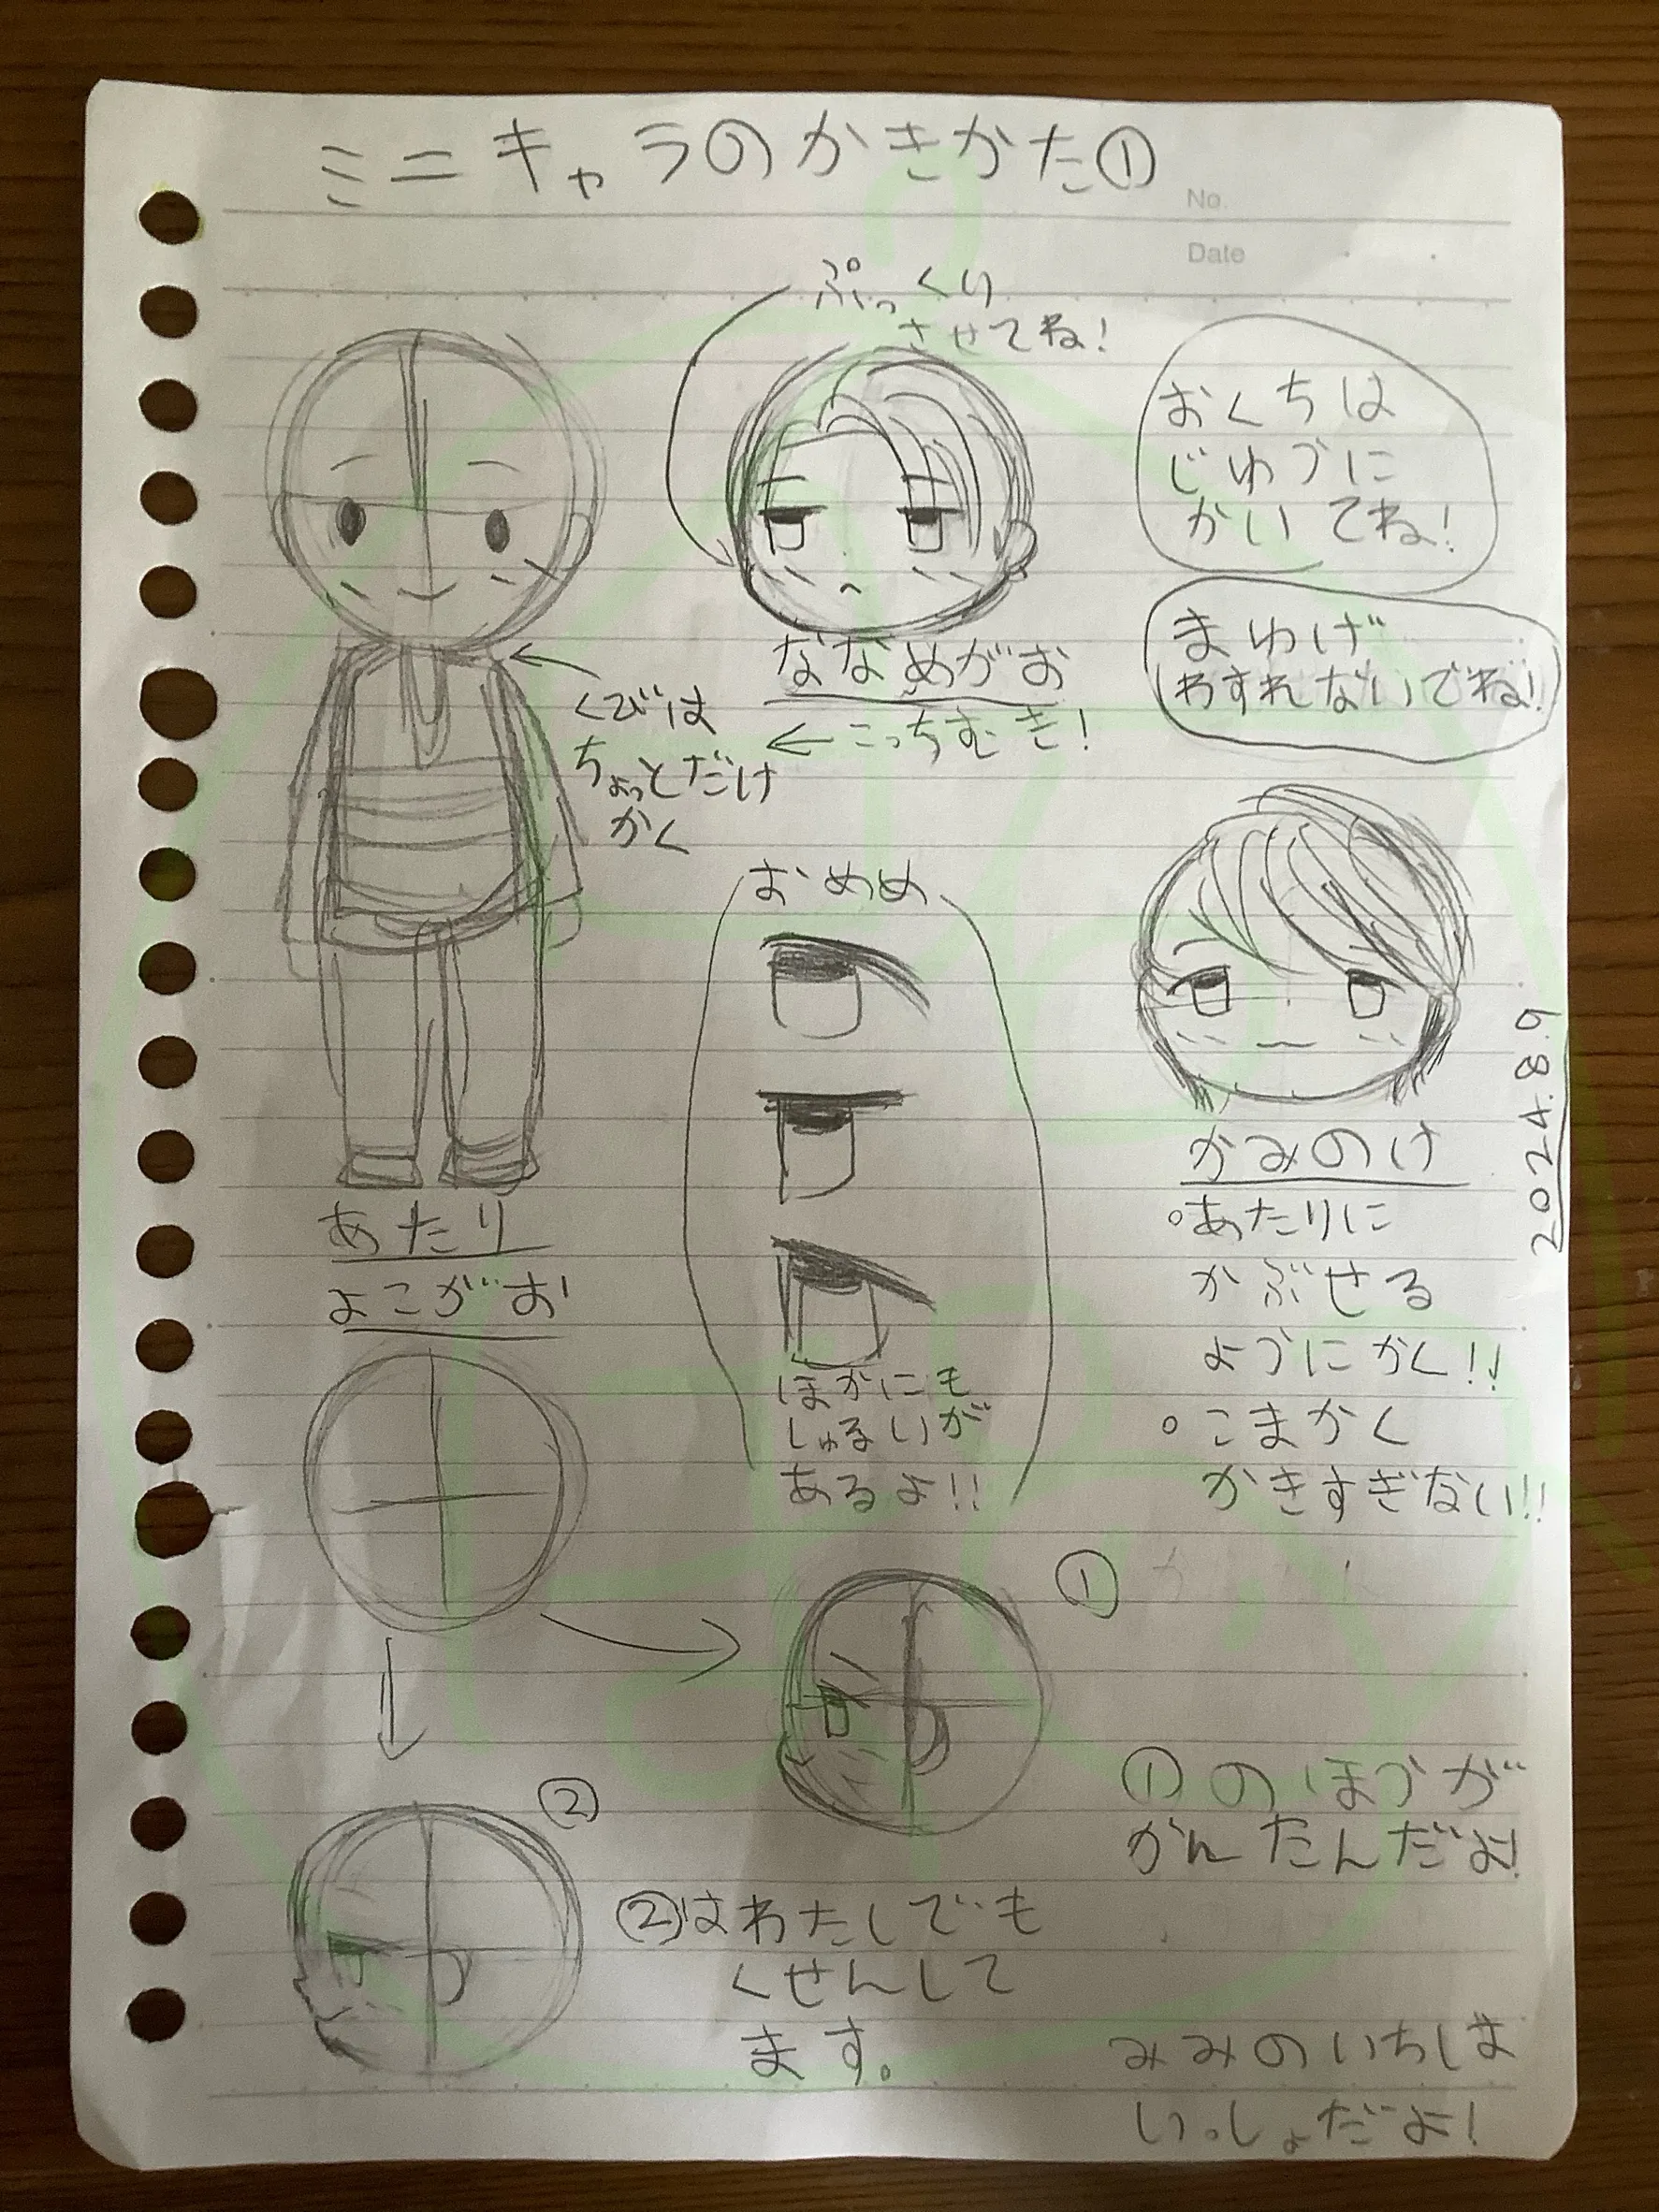 ミニキャラのかきかた①
No.
Date
ぷっくり
させてね!
おくちは
じゆうに
かいてね!
まゆげ
わすれないでね!
ななめがお
←こっちむき!
くびは
ちょっとだけ
かく
おめめ
ほかにも
しゅるいが
あるよ!!
かみのけ
○あたりに
かぶせる
ようにかく!!
○こまかく
かきすぎない!!
2024.8.9
あたり
よこがお
①
②
①のほうが
かんたんだよ!
②はわたしでも
くせんして
ます。
みみのいちは
いっしょだよ!